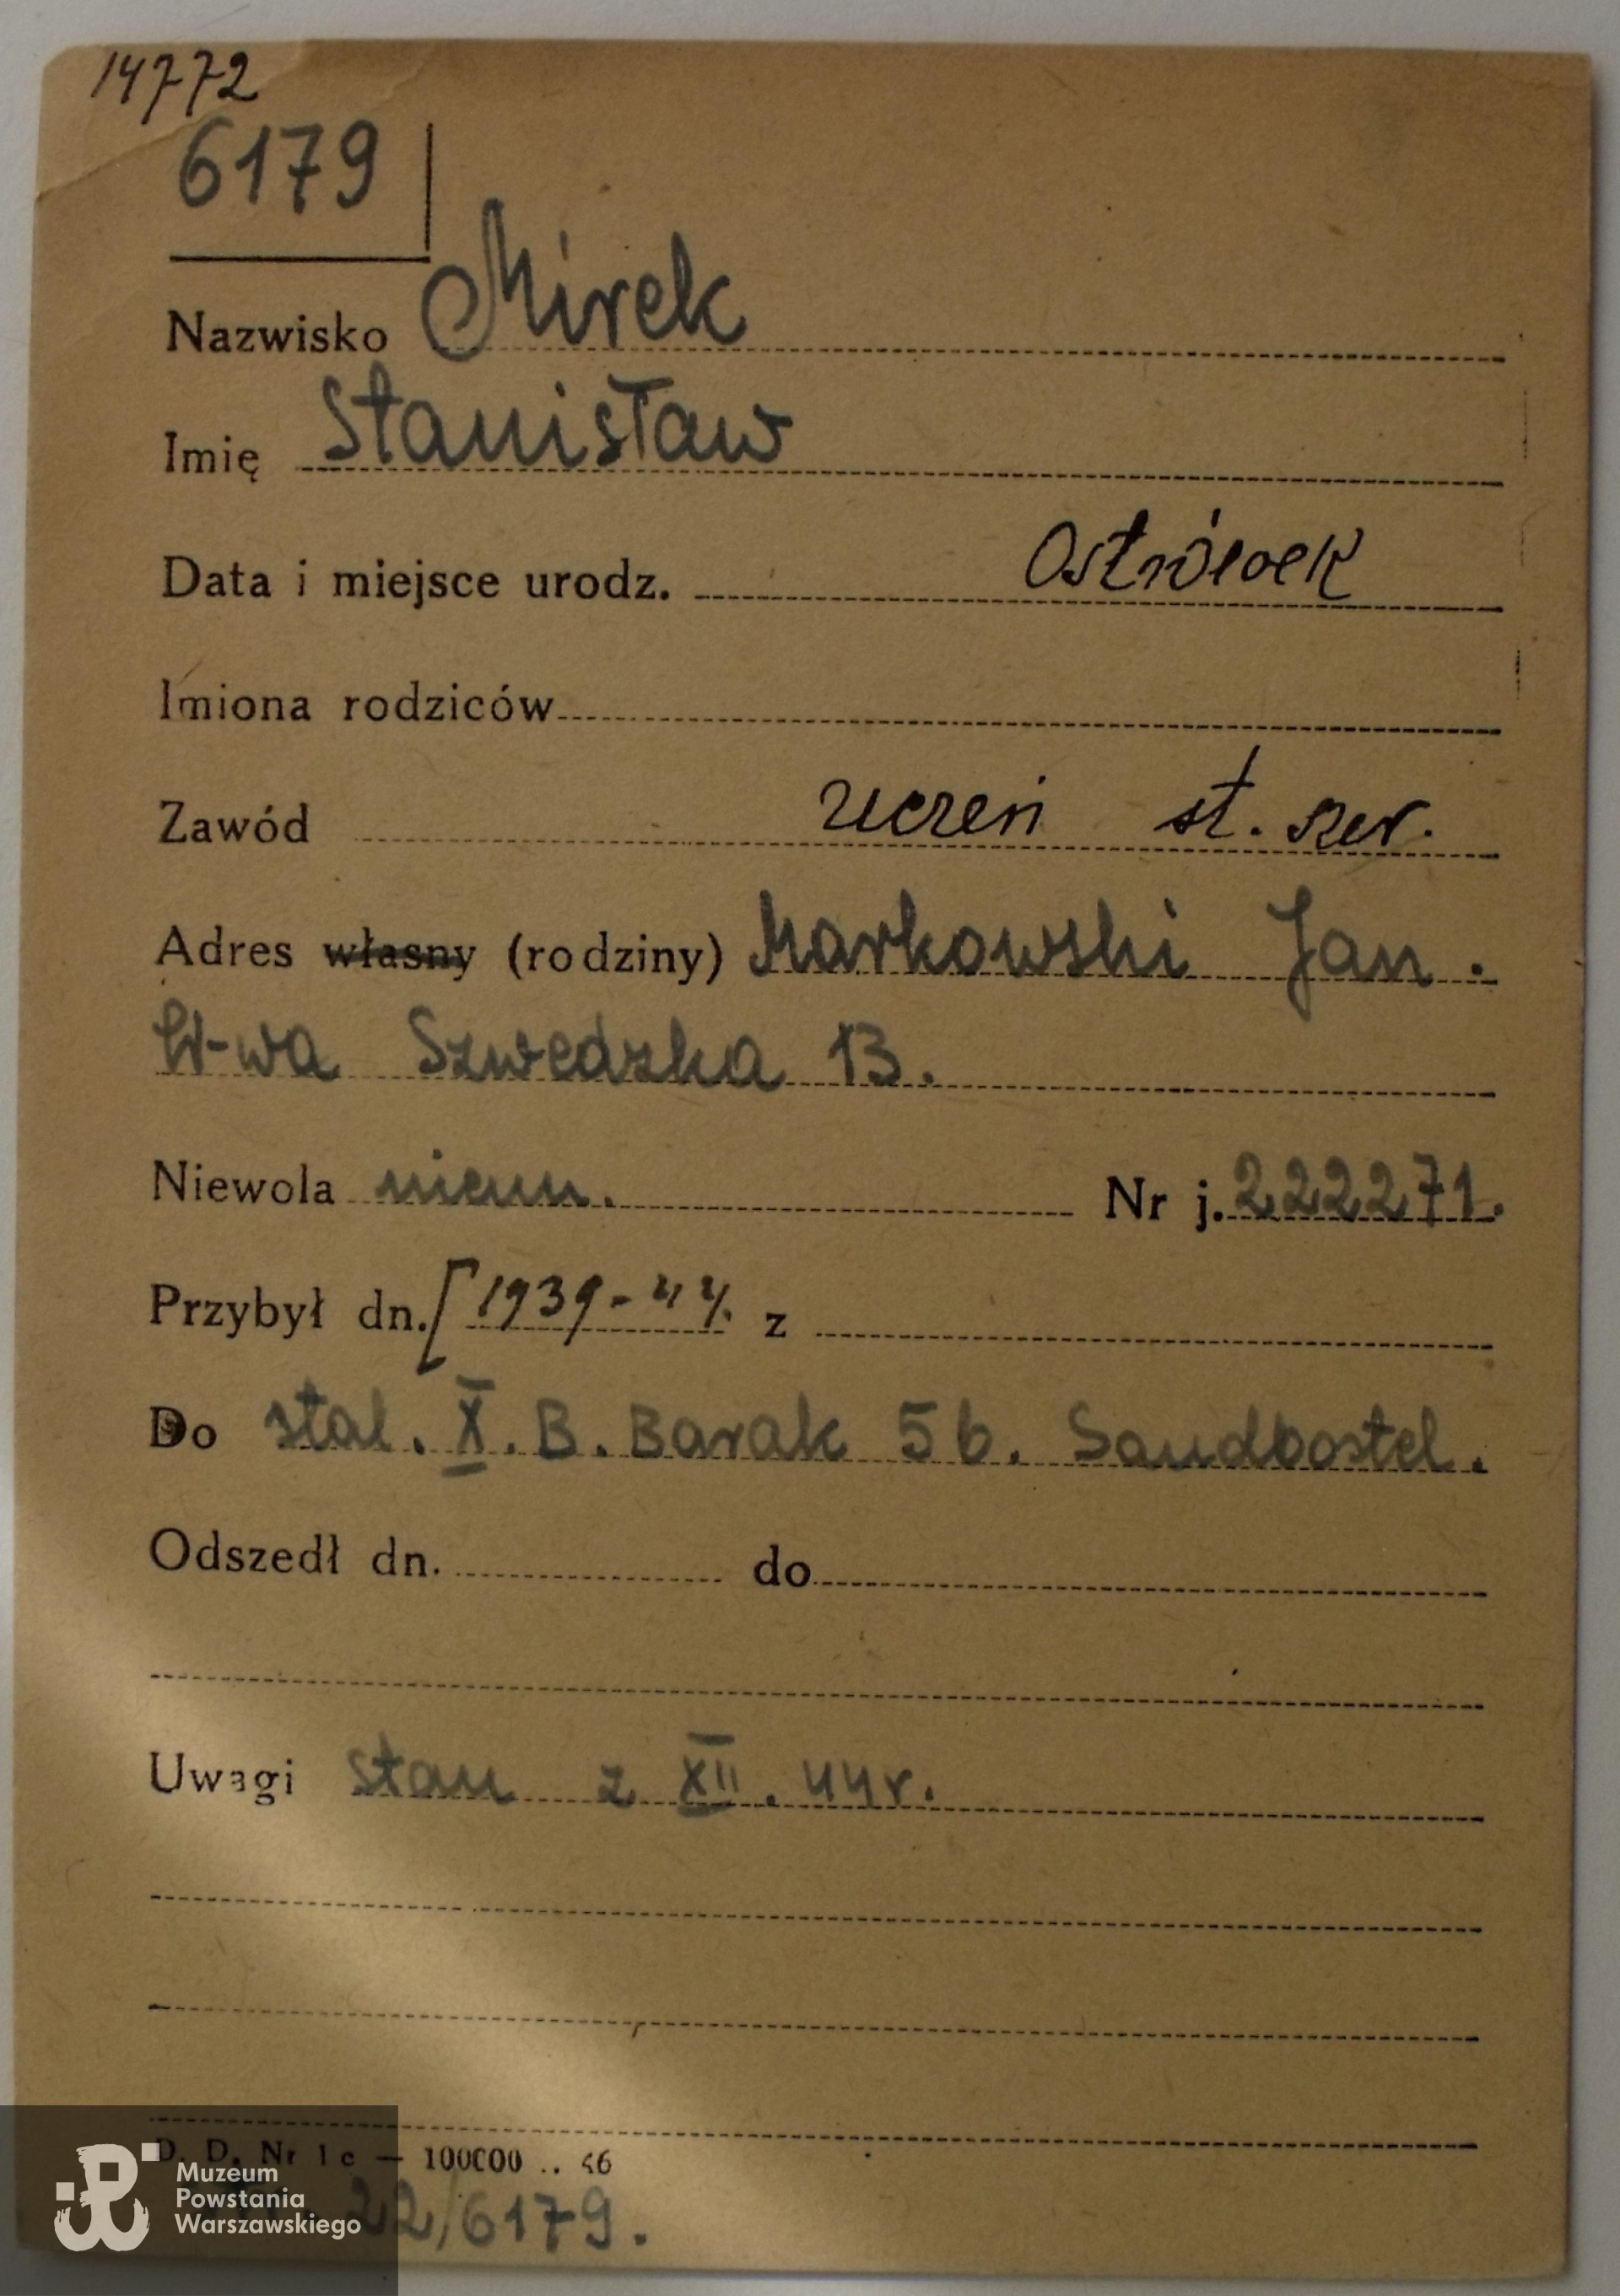 14772
6179
Nazwisko Mirek
Imię Stanisław
Data i miejsce urodz. Ostrówek
Imiona rodziców
Zawód uczeń st. szer.
Adres własny (rodziny) Markowski Jan.
W-wa Szwedzka 13.
Niewola niem. Nr j. 222271.
Przybył dn. [1939-44. z
Do stal. X. B. Barak 56. Sandbostel.
Odszedł dn. do
Uwagi stan z XII. 44r.
D. D. Nr 1 c — 100000 .. 46
22/6179.
Muzeum
Powstania
Warszawskiego